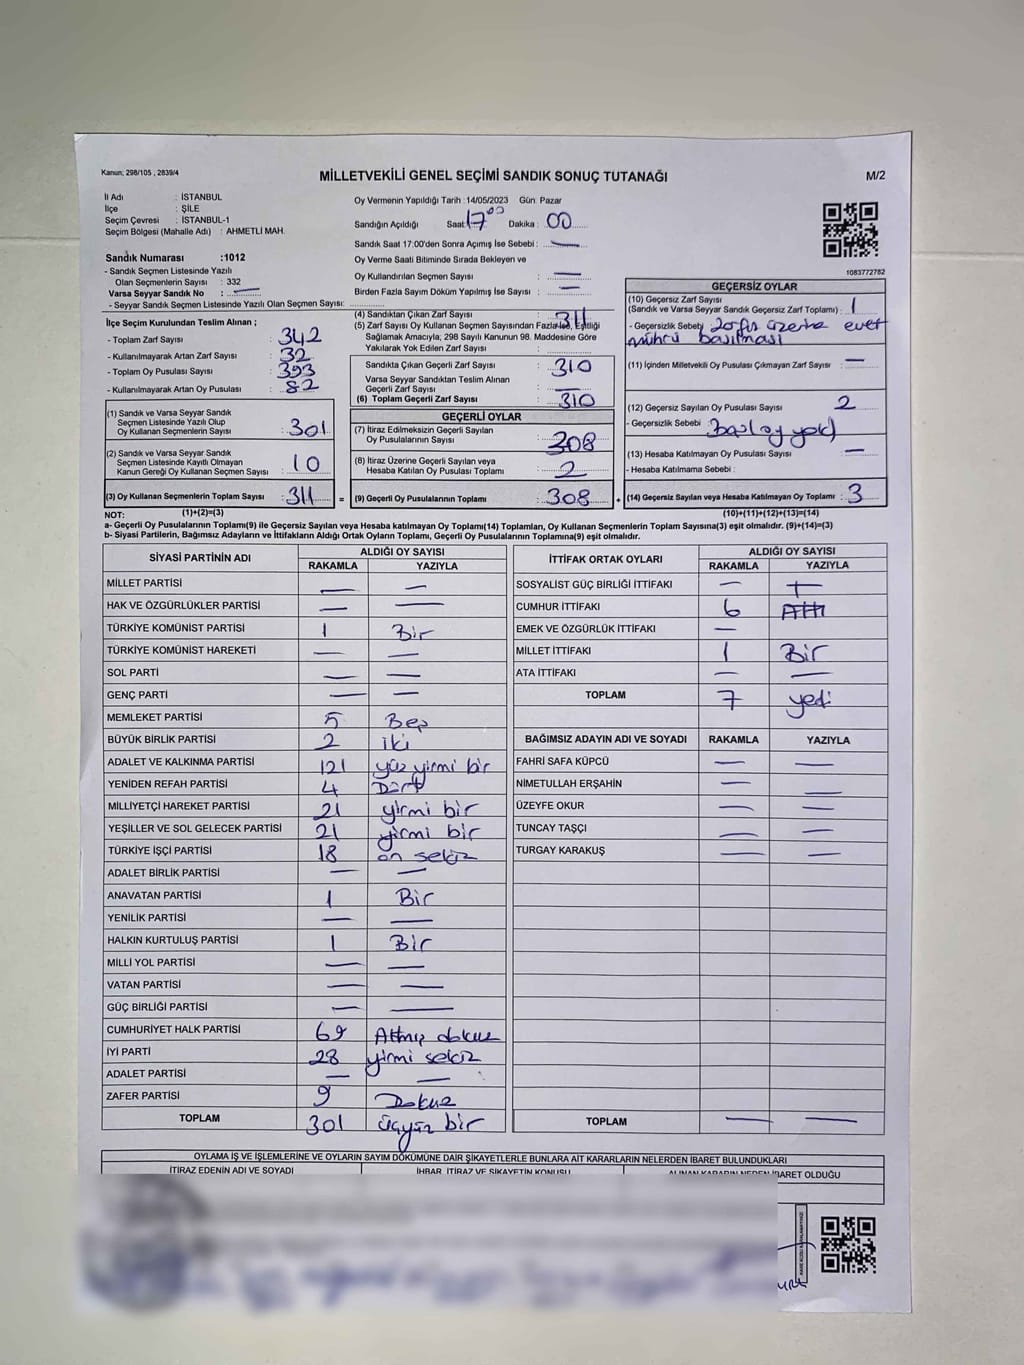 Kanun; 298/105 , 2839/4
MİLLETVEKİLİ GENEL SEÇİMİ SANDIK SONUÇ TUTANAĞI
M/2
İl Adı : İSTANBUL
İlçe : ŞİLE
Seçim Çevresi : İSTANBUL-1
Seçim Bölgesi (Mahalle Adı) : AHMETLİ MAH.
Oy Vermenin Yapıldığı Tarih :14/05/2023 Gün: Pazar
Sandığın Açıldığı Saat: 17 00 Dakika : 00
Sandık Saat 17:00'den Sonra Açımış İse Sebebi : —
Oy Verme Saati Bitiminde Sırada Bekleyen ve
Oy Kullandırılan Seçmen Sayısı : —
Birden Fazla Sayım Döküm Yapılmış İse Sayısı : —
1083772782
Sandık Numarası :1012
- Sandık Seçmen Listesinde Yazılı
Olan Seçmenlerin Sayısı : 332
Varsa Seyyar Sandık No : —
- Seyyar Sandık Seçmen Listesinde Yazılı Olan Seçmen Sayısı:
İlçe Seçim Kurulundan Teslim Alınan ;
- Toplam Zarf Sayısı : 342
- Kullanılmayarak Artan Zarf Sayısı : 32
- Toplam Oy Pusulası Sayısı : 393
- Kullanılmayarak Artan Oy Pusulası : 82
(1) Sandık ve Varsa Seyyar Sandık
Seçmen Listesinde Yazılı Olup
Oy Kullanan Seçmenlerin Sayısı : 301
(2) Sandık ve Varsa Seyyar Sandık
Seçmen Listesinde Kayıtlı Olmayan
Kanun Gereği Oy Kullanan Seçmen Sayısı : 10
(3) Oy Kullanan Seçmenlerin Toplam Sayısı : 311 =
(4) Sandıktan Çıkan Zarf Sayısı : 311
(5) Zarf Sayısı Oy Kullanan Seçmen Sayısından Fazla İse, Eşitliği
Sağlamak Amacıyla, 298 Sayılı Kanunun 98. Maddesine Göre
Yakılarak Yok Edilen Zarf Sayısı :
Sandıkta Çıkan Geçerli Zarf Sayısı : 310
Varsa Seyyar Sandıktan Teslim Alınan
Geçerli Zarf Sayısı : —
(6) Toplam Geçerli Zarf Sayısı : 310
GEÇERLİ OYLAR
(7) İtiraz Edilmeksizin Geçerli Sayılan
Oy Pusulalarının Sayısı : 308
(8) İtiraz Üzerine Geçerli Sayılan veya
Hesaba Katılan Oy Pusulası Toplamı : 2
(9) Geçerli Oy Pusulalarının Toplamı : 308 +
GEÇERSİZ OYLAR
(10) Geçersiz Zarf Sayısı
(Sandık ve Varsa Seyyar Sandık Geçersiz Zarf Toplamı) : 1
- Geçersizlik Sebebi zarfın üzerine evet
mührü basılması
(11) İçinden Milletvekili Oy Pusulası Çıkmayan Zarf Sayısı : —
(12) Geçersiz Sayılan Oy Pusulası Sayısı : 2
- Geçersizlik Sebebi
(13) Hesaba Katılmayan Oy Pusulası Sayısı : —
- Hesaba Katılmama Sebebi :
(14) Geçersiz Sayılan veya Hesaba Katılmayan Oy Toplamı : 3
NOT: (1)+(2)=(3)
(10)+(11)+(12)+(13)=(14)
a- Geçerli Oy Pusulalarının Toplamı(9) ile Geçersiz Sayılan veya Hesaba katılmayan Oy Toplamı(14) Toplamları, Oy Kullanan Seçmenlerin Toplam Sayısına(3) eşit olmalıdır. (9)+(14)=(3)
b- Siyasi Partilerin, Bağımsız Adayların ve İttifakların Aldığı Ortak Oyların Toplamı, Geçerli Oy Pusulalarının Toplamına(9) eşit olmalıdır.
SİYASİ PARTİNİN ADI ALDIĞI OY SAYISI
RAKAMLA YAZIYLA
MİLLET PARTİSİ — —
HAK VE ÖZGÜRLÜKLER PARTİSİ — —
TÜRKİYE KOMÜNİST PARTİSİ 1 Bir
TÜRKİYE KOMÜNİST HAREKETİ — —
SOL PARTİ — —
GENÇ PARTİ — —
MEMLEKET PARTİSİ 5 Beş
BÜYÜK BİRLİK PARTİSİ 2 iki
ADALET VE KALKINMA PARTİSİ 121 yüz yirmi bir
YENİDEN REFAH PARTİSİ 4 Dört
MİLLİYETÇİ HAREKET PARTİSİ 21 yirmi bir
YEŞİLLER VE SOL GELECEK PARTİSİ 21 yirmi bir
TÜRKİYE İŞÇİ PARTİSİ 18 on sekiz
ADALET BİRLİK PARTİSİ — —
ANAVATAN PARTİSİ 1 Bir
YENİLİK PARTİSİ — —
HALKIN KURTULUŞ PARTİSİ 1 Bir
MİLLİ YOL PARTİSİ — —
VATAN PARTİSİ — —
GÜÇ BİRLİĞİ PARTİSİ — —
CUMHURİYET HALK PARTİSİ 69 Altmış dokuz
İYİ PARTİ 28 yirmi sekiz
ADALET PARTİSİ — —
ZAFER PARTİSİ 9 Dokuz
TOPLAM 301 üçyüz bir
İTTİFAK ORTAK OYLARI ALDIĞI OY SAYISI
RAKAMLA YAZIYLA
SOSYALİST GÜÇ BİRLİĞİ İTTİFAKI — —
CUMHUR İTTİFAKI 6 Altı
EMEK VE ÖZGÜRLÜK İTTİFAKI —
MİLLET İTTİFAKI 1 Bir
ATA İTTİFAKI — —
TOPLAM 7 yedi
BAĞIMSIZ ADAYIN ADI VE SOYADI RAKAMLA YAZIYLA
FAHRİ SAFA KÜPCÜ — —
NİMETULLAH ERŞAHİN — —
ÜZEYFE OKUR — —
TUNCAY TAŞÇI — —
TURGAY KARAKUŞ — —
TOPLAM — —
OYLAMA İŞ VE İŞLEMLERİNE VE OYLARIN SAYIM DÖKÜMÜNE DAİR ŞİKAYETLERLE BUNLARA AİT KARARLARIN NELERDEN İBARET BULUNDUKLARI
İTİRAZ EDENİN ADI VE SOYADI İHBAR, İTİRAZ VE ŞİKAYETİN KONUSU ALINAN KARARIN NEDEN İBARET OLDUĞU